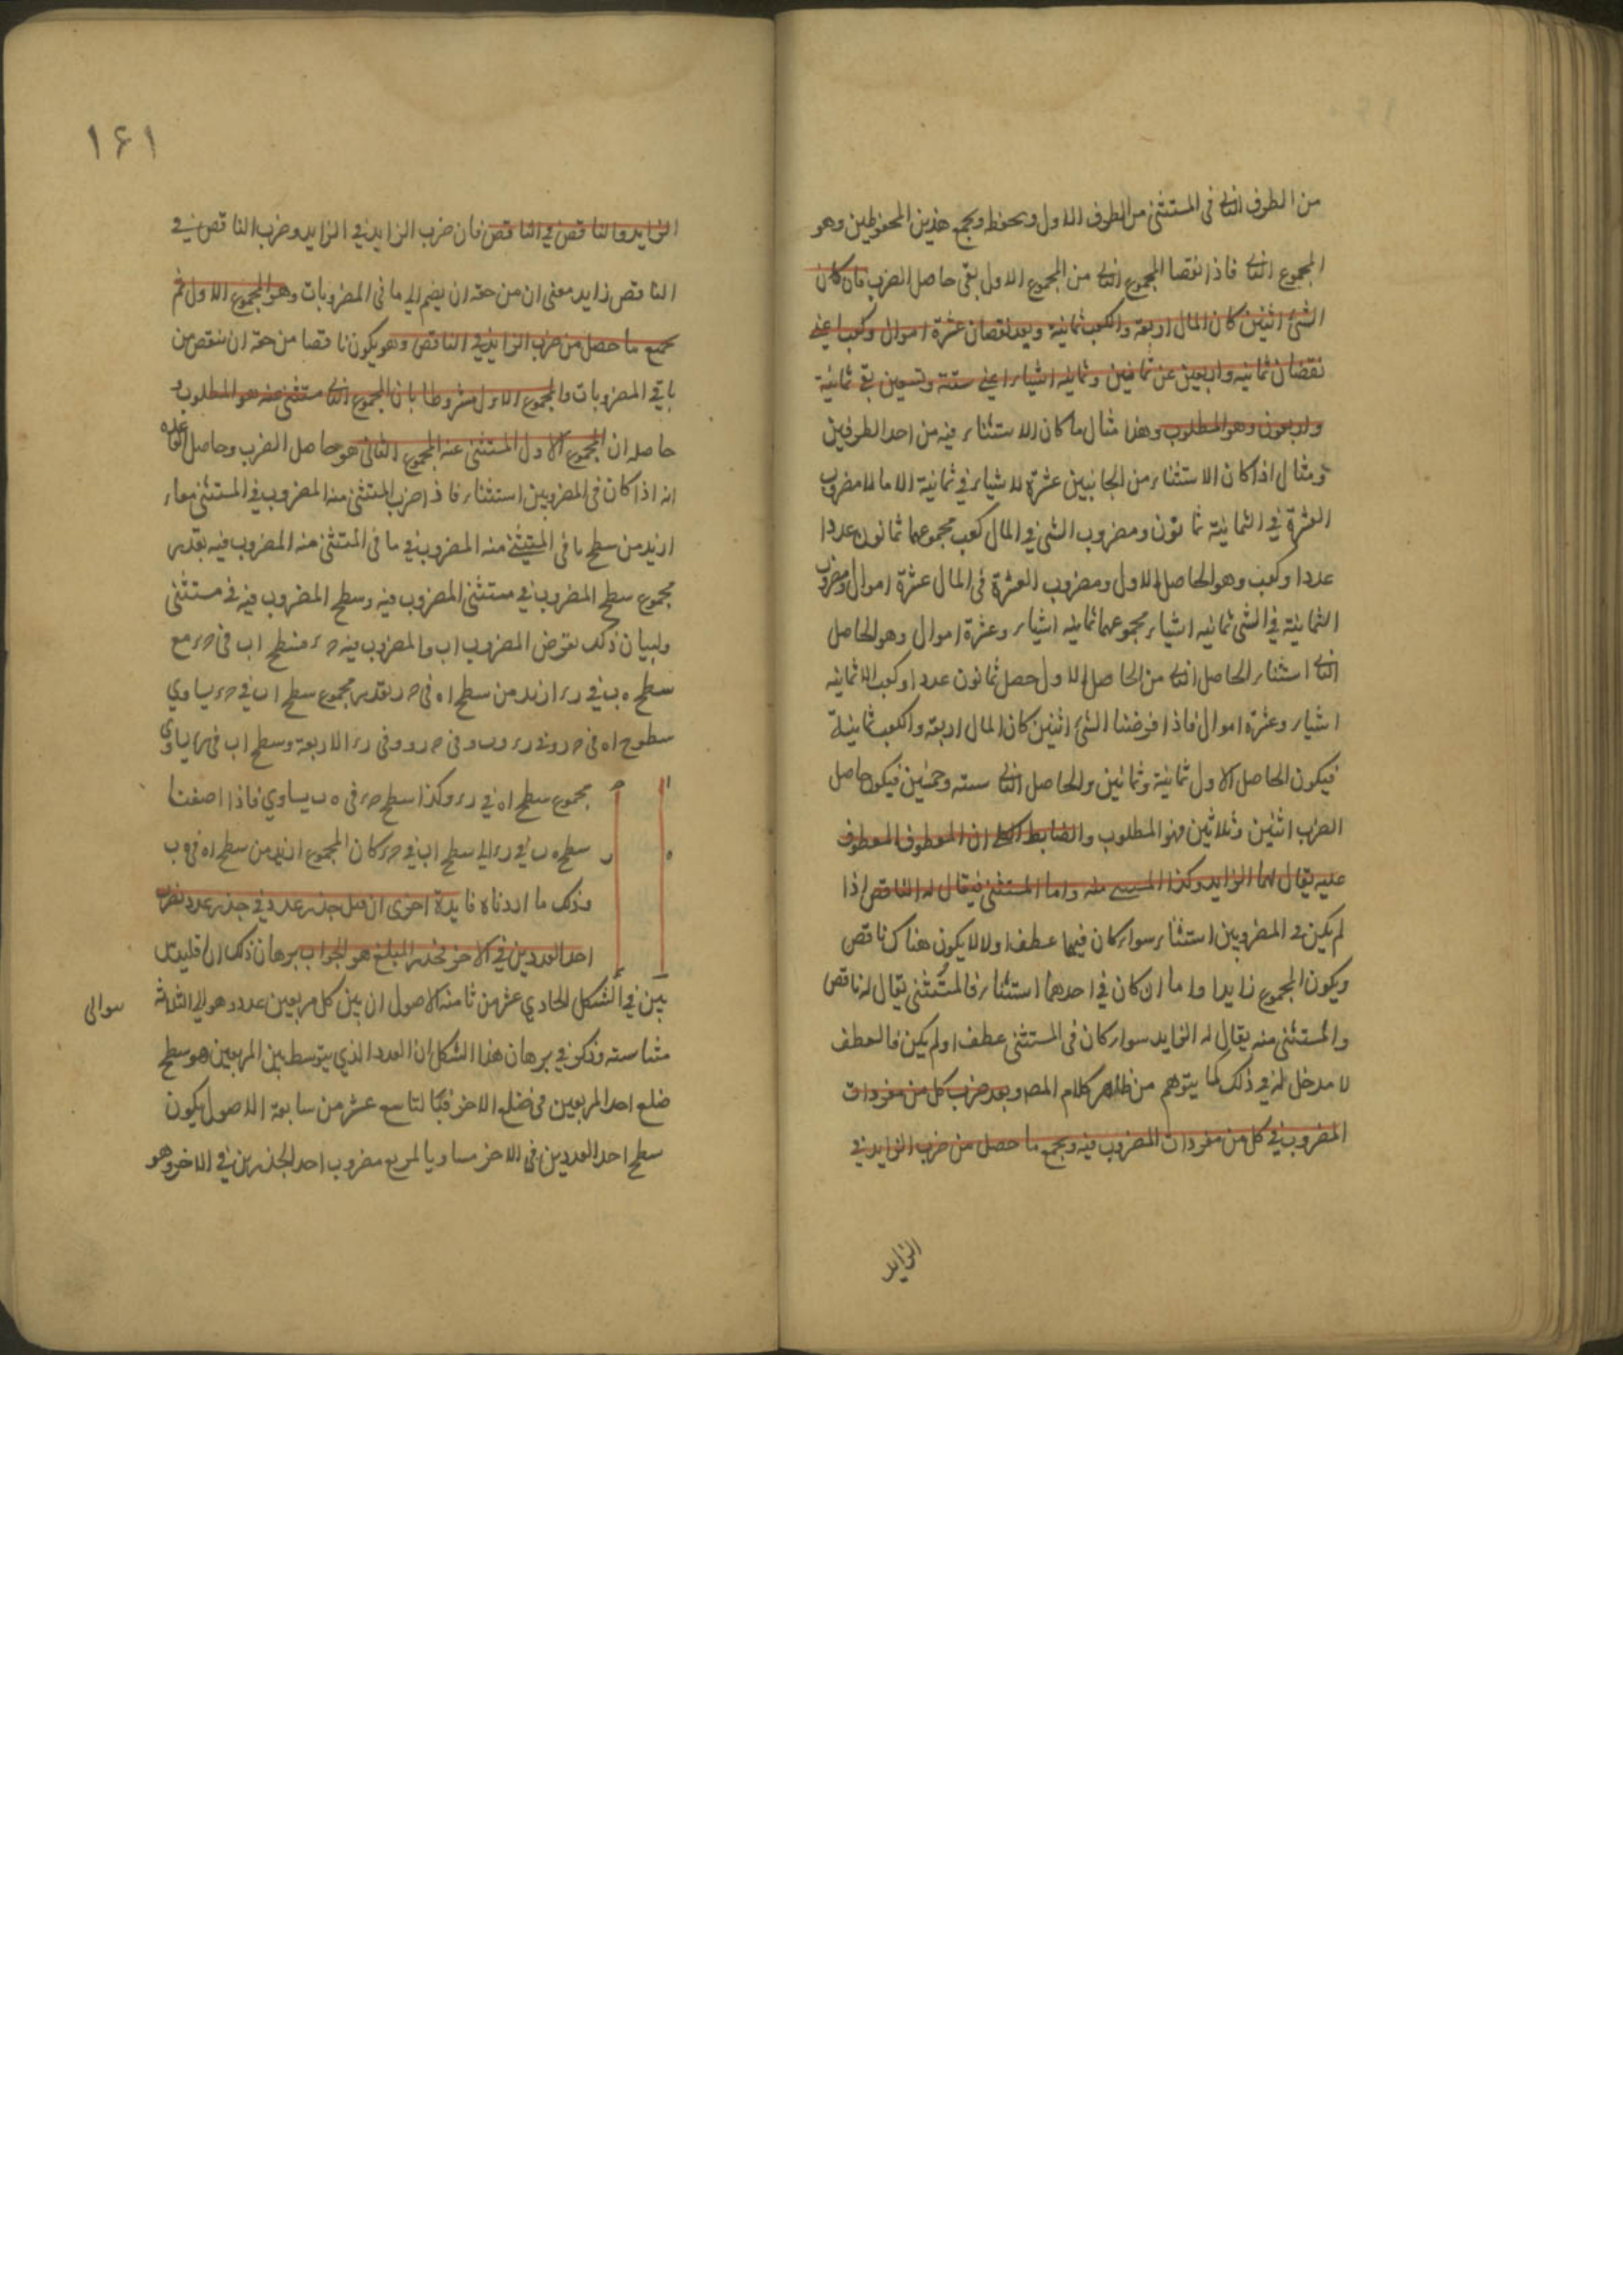 من الطرف الثانى فى المستثنى من الطرف الاول ويحفظ ويجمع هذين المحفوظين وهو
المجموع الثانى فاذا نقصنا المجموع الثانى من المجموع الاول بقى حاصل الضرب فان كان
الشئ اثنين كان المال اربعة والكعب ثمانية وبعد نقصان عشرة اموال وكعبا عنى
نقصان ثمانيه واربعين عن ثمانين وثمانيه اشياء اعنى ستة وتسعين بقى ثمانية
واربعون وهو المطلوب وهذا مثال ما كان الاستثناء فيه من احد الطرفين
ومثال اذا كان الاستثناء من الجانبين عشرة الا شياء فى ثمانية الا مالا مضروب
العشرة فى الثمانية ثمانون ومضروب الشئ فى المال كعب مجموعهما ثمانون عددا
عددا وكعب وهو الحاصل الاول ومضروب العشرة فى المال عشرة اموال ومضروب
الثمانية فى الشئ ثمانيه اشياء مجموعهما ثمانيه اشياء وعشرة اموال وهو الحاصل
الثانى استثناء الحاصل الثانى من الحاصل الاول حصل ثمانون عددا وكعب الا ثمانيه
اشياء وعشرة اموال فاذا فرضنا الشئ اثنين كان المال اربعة والكعب ثمانية
فيكون الحاصل الاول ثمانية وثمانين والحاصل الثانى سته وخمسين فيكون حاصل
الضرب اثنين وثلاثين فهو المطلوب والضابط الكلى ان المعطوف المعطوف
عليه يقال لهما الزايد وكذا المستثنى منه واما المستثنى فيقال له الناقص اذا
لم يكن فى المضروبين استثناء سواء كان فيهما عطف او لا لا يكون هناك ناقص
ويكون المجموع زايدا واما ان كان فى احدهما استثناء فالمستثنى يقال له ناقص
والمستثنى منه يقال له الزايد سواء كان فى المستثنى عطف او لم يكن فالعطف
لا مدخل له فى ذلك كما يتوهم من ظاهر كلام المصـ وبعد ضرب كل من مفردات
المضروب فى كل من مفردات المضروب فيه ويجمع ما حصل من ضرب الزايد فى
الزايد
١٤١
الزايد والناقص فى الناقص فان ضرب الزايد فى الزايد وضرب الناقص فى
الناقص زايد معنى ان من حقه ان يضم الى ما فى المضروبات وهو المجموع الاول ثم
يجمع ما حصل من ضرب الزايد فى الناقص وهو يكون ناقصا من حقه ان ينقص من
باقى المضروبات والمجموع الاول مشروطا بان المجموع الثانى مستثنى عنه هو المطلوب
حاصله ان المجموع الاول المستثنى عنه المجموع الثانى هو حاصل الضرب وحاصل القاعده
انه اذا كان فى المضروبين استثناء فاذا ضرب المستثنى منه المضروب فى المستثنى معا
ازيد من سطح ما فى المستثنى منه المضروب فى ما فى المستثنى منه المضروب فيه بقدر
مجموع سطح المضروب فى مستثنى المضروب فيه وسطح المضروب فيه فى مستثنى
ولبيان ذلك نفرض المضروب اب والمضروب فيه حر فسطح اب فى حر مع
سطح ه ب فى در ازيد من سطح اه فى حد بقدر مجموع سطح اب فى در يساوي
سطوح اه فى حد وفى در وه ب فى حد وفى در الاربعة وسطح اب فى در يساوى
مجموع سطح اه فى در وكذا سطح حر فى ه ب يساوي فاذا اضفنا
سطح ه ب فى در الى سطح اب فى حر كان المجموع ازيد من سطح اه فى
وذلك ما اردناه فايدة اخرى ان قيل جذر عدد فى جذر عدد نضرب
احد العددين فى الاخر فجذر المبلغ هو الجواب برهان ذلك ان اقليدس
بين فى الشكل الحادي عشر من ثامنة الاصول ان بين كل مربعين عدد هو الى الثلاثة
سوالى
متناسبة وذكر فى برهان هذا الشكل ان العدد الذي يتوسط بين المربعين هو سطح
ضلع احد المربعين فى ضلع الاخر فبالتاسع عشر من سابعة الاصول يكون
سطح احد العددين فى الاخر مساويا لمربع مضروب احد الجذرين فى الاخر وهو